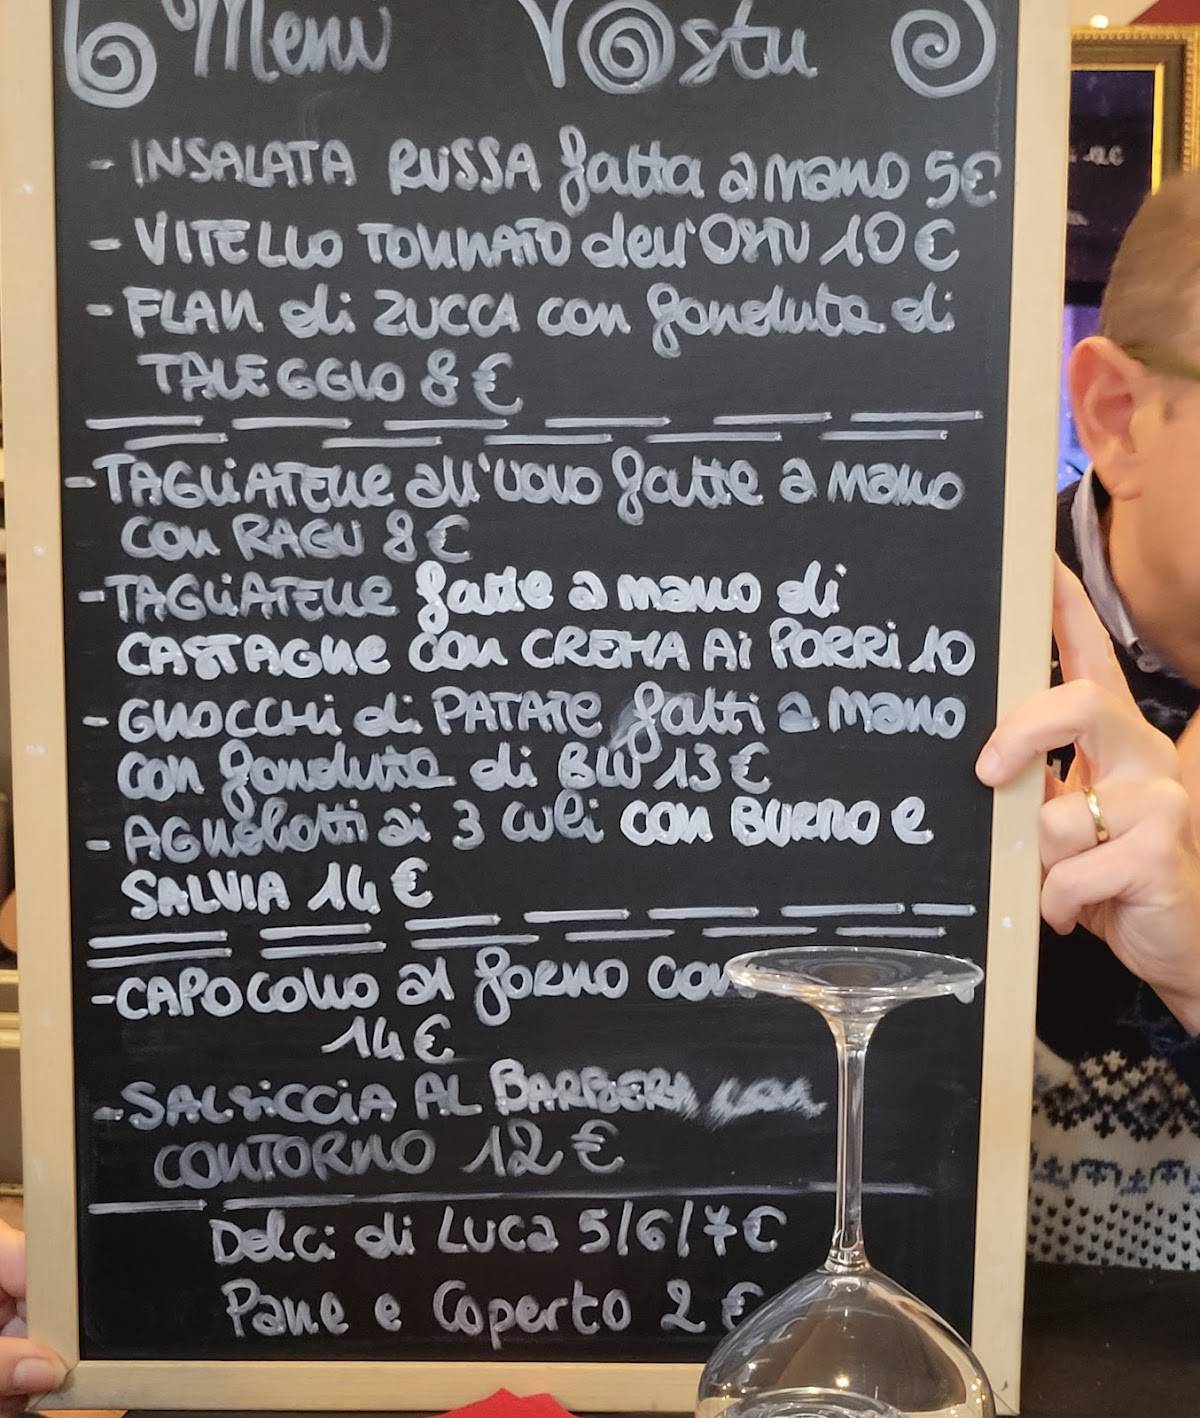 Menù Vostu
- INSALATA RUSSA fatta a mano 5€
- VITELLO TONNATO dell'OSTU 10€
- FLAN di ZUCCA con fonduta di
TALEGGIO 8€
- TAGLIATELLE all'uovo fatte a mano
con RAGU 8€
- TAGLIATELLE fatte a mano di
CASTAGNE con CREMA AI PORRI 10
- GNOCCHI di PATATE fatti a mano
con fonduta di BLU 13€
- AGNOLOTTI ai 3 culi con BURRO e
SALVIA 14€
- CAPOCOLLO al forno con
14€
- SALSICCIA AL BARBERA con
CONTORNO 12€
Dolci di Luca 5/6/7€
Pane e Coperto 2€